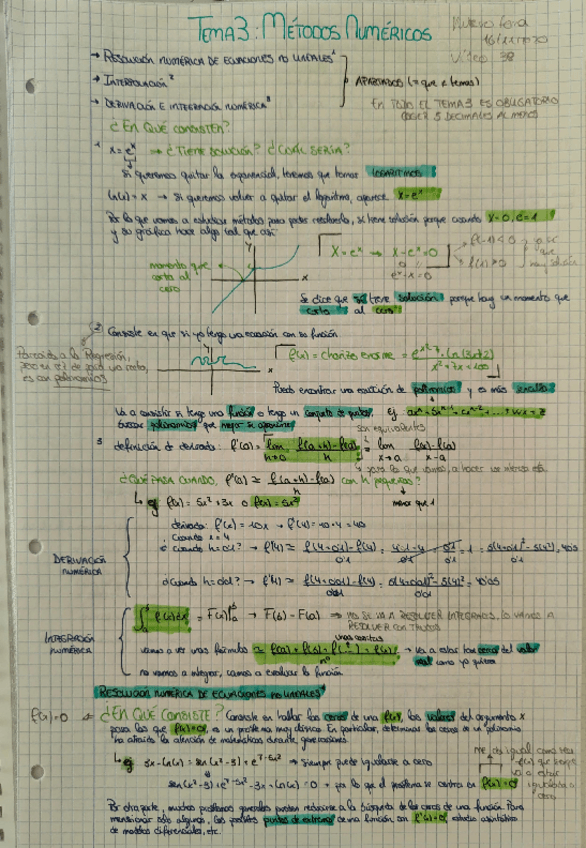 TEMA 3: MÉTODOS NUMÉRICOS
16/11/2020
VÍDEO 38
→ RESOLUCIÓN NUMÉRICA DE ECUACIONES NO LINEALES¹
→ INTERPOLACIÓN²
→ DERIVACIÓN E INTEGRACIÓN NUMÉRICA³
APARTADOS
EN TODO EL TEMA 3 ES OBLIGATORIO
COGER 5 DECIMALES AL MENOS
¿EN QUÉ CONSISTEN?
¹ x = eˣ → ¿TIENE SOLUCIÓN? ¿CUÁL SERÍA?
Si queremos quitar la exponencial, tenemos que tomar LOGARITMOS
Ln(x) = x → Si queremos volver a quitar el logaritmo, aparece x = eˣ
Por lo que vamos a estudiar métodos para poder resolverlo, si tiene solución porque cuando
y su gráfica hace algo tal que así:
momento que
corta al
cero
y
x
x = eˣ → x - eˣ = 0
eˣ - x = 0
Se dice que sí tiene solución porque hay un momento que
corta al cero
² Consiste en que si yo tengo una ecuación con su función
Parecido a la Regresión,
es con polinomios
f(x) = chorizo enorme =
Puedo encontrar una ecuación de polinomios y es más sencillo
Va a consistir si tengo una función o tengo un conjunto de puntos,
buscar polinomios que mejor se aproximen
son equivalentes
³ definición de derivada: f'(a) = lim h→0 f(a+h) - f(a) / h = lim x→a f(x) - f(a) / x - a
¿QUÉ PASA CUANDO f'(a) ≃ f(a+h) - f(a) / h con h pequeños?
menor que 1
eg f(x) = 5x² + 3x o f(x) = 5x²
DERIVACIÓN
NUMÉRICA
derivada: f'(x) = 10x → f'(4) = 10·4 = 40
cuando x = 4
¿cuando h = 0.1? → f'(4) ≃ f(4+0.1) - f(4) / 0.1
¿cuando h = 0.01? → f'(4) ≃ f(4+0.01) - f(4) / 0.01 = 5(4+0.01)² - 5(4)² / 0.01 = 40.05
INTEGRACIÓN
NUMÉRICA
F(b) - F(a) → NO SE VA A RESOLVER INTEGRALES, LO VAMOS A
RESOLVER CON TRUCOS
vamos a ver unas fórmulas
va a estar tan cerca del valor
real como yo quiera
no vamos a integrar, vamos a evaluar la función
RESOLUCIÓN NUMÉRICA DE ECUACIONES NO LINEALES¹
f(x) = 0 ¿EN QUÉ CONSISTE? Consiste en hallar los ceros de una f(x), los valores del argumento x
para los que f(x) = 0, es un problema muy clásico. En particular, determinar los ceros de un polinomio
ha atraído la atención de matemáticos durante generaciones.
eg 3x - Ln(x) = sen(x² - 3) + e^(7-5x²) → siempre puede igualarse a cero
sen(x² - 3) + e^(7-5x²) - 3x + Ln(x) = 0 → por lo que el problema se centra en f(x) = 0
me da igual como sea
f(x) que siempre
va a estar
igualada a
cero
Por otra parte, muchos problemas generales pueden reducirse a la búsqueda de los ceros de una función. Para
mencionar sólo algunos, los posibles puntos de extremo de una función con f'(x) = 0, estudio asintótico
de modelos diferenciales, etc.